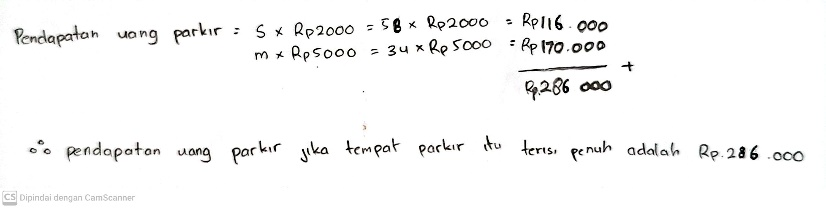 Pendapatan uang parkir = S x Rp2000 = 58 x Rp2000 = Rp116.000
m x Rp5000 = 34 x Rp5000 = Rp170.000
+
Rp.286 000
∴ pendapatan uang parkir jika tempat parkir itu terisi penuh adalah Rp.286.000
CS Dipindai dengan CamScanner